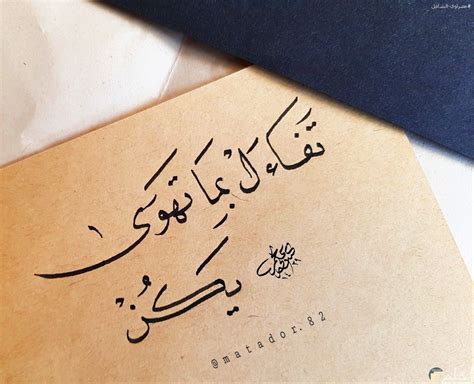 تَفَاءَلْ بِمَا تَهوَى
يَكُنْ
@matador.82